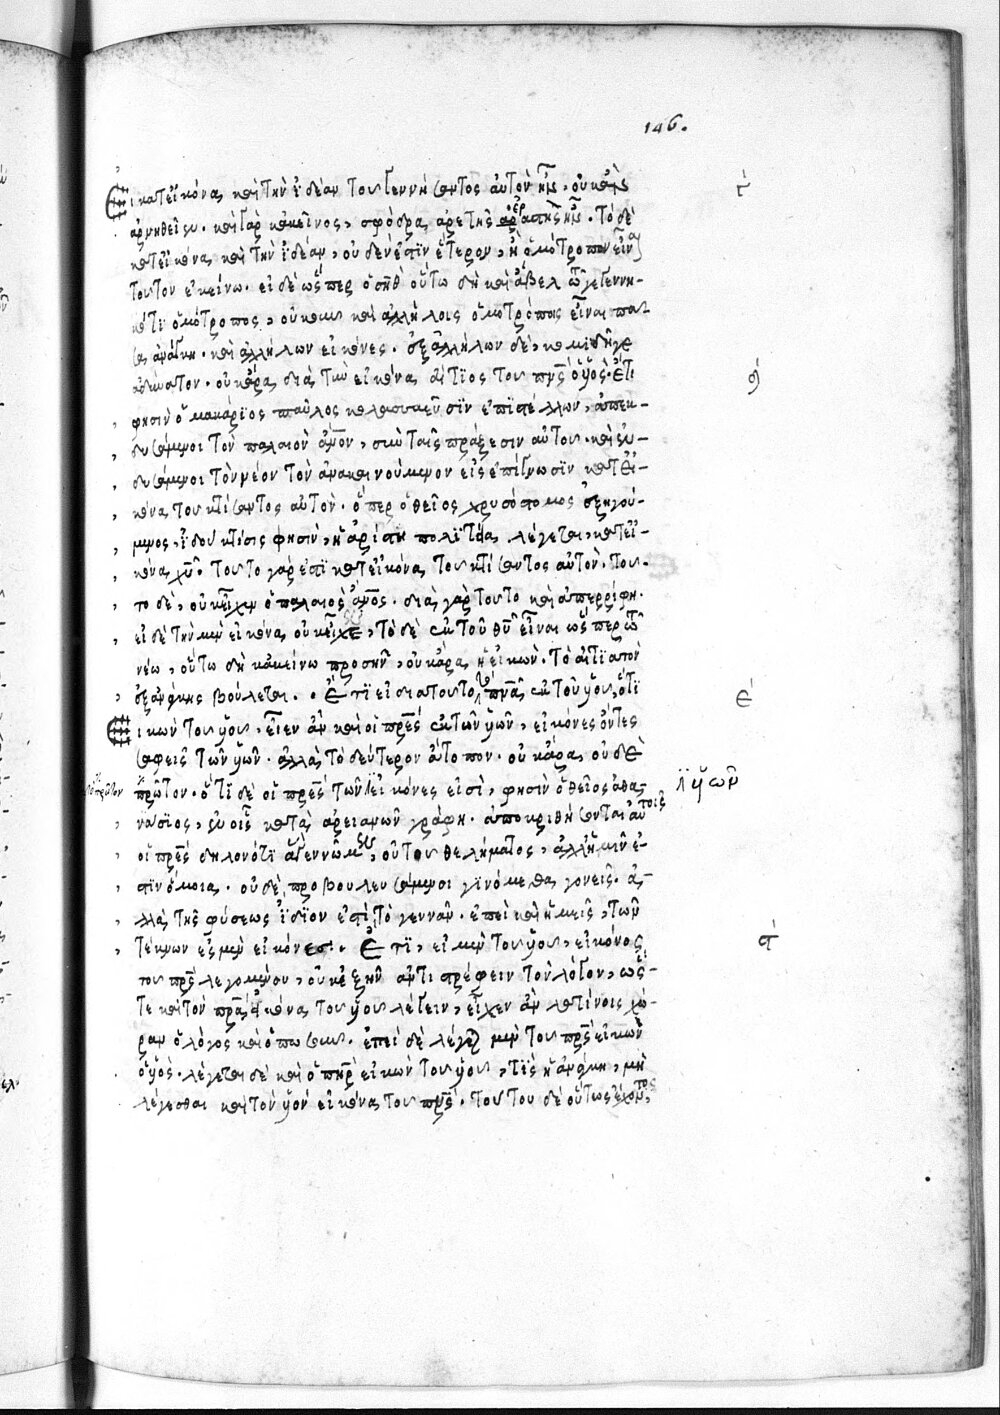 146.
Εἰ κατ' εἰκόνα καὶ τὴν ἰδέαν τοῦ γεννήσαντος αὐτὸν
ἀρνηθείη. καὶ γὰρ κἀκεῖνος, σφόδρα ἀρετῆς τὸ δὲ
κατ' εἰκόνα καὶ τὴν ἰδέαν, οὐδέν ἐστιν ἕτερον, ἢ ὁμότροπον εἶναι
τοῦτον ἐκείνω. εἰ δὲ ὥσπερ ὁ σὴθ οὕτω δὴ καὶ ἄβελ γεγέννη-
ται ὁμότροπος, καὶ ἀλλήλοις ὁμοτρόπους εἶναι πᾶ-
σα ἀνάγκη. καὶ ἀλλήλων εἰκόνες. ἐξ ἀλλήλων δὲ, κομιδῆ γε
ἀδύνατον. οὐκ ἄρα διὰ τὴν εἰκόνα αἴτιος τοῦ πνς ὁ υἱός. ἔτι
φησὶν ὁ μακάριος παῦλος κολασσαεῦσιν ἐπιστέλλων, ἀπεκ-
δυσάμενοι τὸν παλαιὸν ἄνον, σὺν ταῖς πράξεσιν αὐτοῦ. καὶ ἐν-
δυσάμενοι τὸν νέον τὸν ἀνακαινούμενον εἰς ἐπίγνωσιν κατ' εἰ-
κόνα τοῦ κτίσαντος αὐτόν. ὅπερ ὁ θεῖος χρυσόστομος ἐξηγού-
μενος, ἰδοὺ κτίσις φησὶν, ἡ ἀρίστη πολιτεία λέγεται, κατ' εἰ-
κόνα χυ. τοῦτο γάρ ἐστι κατ' εἰκόνα τοῦ κτίσαντος αὐτόν. τοῦ-
το δὲ, οὐκ εἶχεν ὁ παλαιὸς ἄνος. διὰ γὰρ τοῦτο καὶ ἀπερρίφη.
εἰ δὲ τὴν μὲν εἰκόνα οὐκ εἶχε, τὸ δὲ ἐκ τοῦ θυ εἶναι ὥσπερ τῶ
νέω, οὕτω δὴ κἀκείνω προσῆν, οὐκ ἄρα ἡ εἰκὼν. τὸ αἴτιατὸν
ἐξ ἀνάγκης βούλεται. Ἔτι εἰ διὰ τοῦτο τὸ πνα ἐκ τοῦ υἱοῦ, ὅτι
εἰκὼν τοῦ υἱοῦ, εἶεν ἂν καὶ οἱ πρες ἐκ τῶν υἱῶν, εἰκόνες ὄντες
σαφεῖς τῶν υἱῶν. ἀλλὰ τὸ δεύτερον ἄτοπον. οὐκ ἄρα οὐδὲ
τὸ πρῶτον
πρῶτον. ὅτι δὲ οἱ πρες τῶν εἰκόνες εἰσὶ, φησὶν ὁ θεῖος ἀθα-
υἱῶν
νάσιος, ἐν οἷς κατὰ ἀρειανῶν γράφη. ἀποκριθήσονται αὐτοῖς
οἱ πρες δηλονότι οὐ τοῦ θελήματος, ἀλλ' ἡμῶν ἐ-
στιν ὅμοια. οὐδὲ προβουλευσάμενοι γινόμεθα γονεῖς. ἀλ-
λὰ τῆς φύσεως ἴδιον ἐστι τὸ γεννᾶν. ἐπεὶ καὶ ἡμεῖς, τῶν
τέκνων ἐσμὲν εἰκόνες. Ἔτι, εἰ μὲν τοῦ υἱοῦ, εἰκόνος
τοῦ πρς λεγομένου, οὐκ ἐξῆν ἀντιστρέφειν τὸν λόγον, ὥς-
τε καὶ τὸν πρα εἰκόνα τοῦ υἱοῦ λέγειν, εἶχεν ἄν χώ-
ραν ὁ λόγος καὶ ὁπωσοῦν. ἐπεὶ δὲ λέγεται μὲν τοῦ πρς εἰκὼν
ὁ υἱός. λέγεται δὲ καὶ ὁ πηρ εἰκὼν τοῦ υἱοῦ, τίς ἡ ἀνάγκη, μὴ
λέγεσθαι καὶ τὸν υἱὸν εἰκόνα τοῦ πνς. τούτου δὲ οὕτως ἔχοντος,